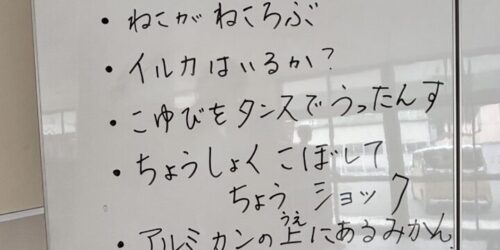 ・ねこが ねころぶ
・イルカはいるか?
・こゆびをタンスでうったんす
・ちょうしょくこぼして
ちょうショック
・アルミカンの上にあるみかん
うえ